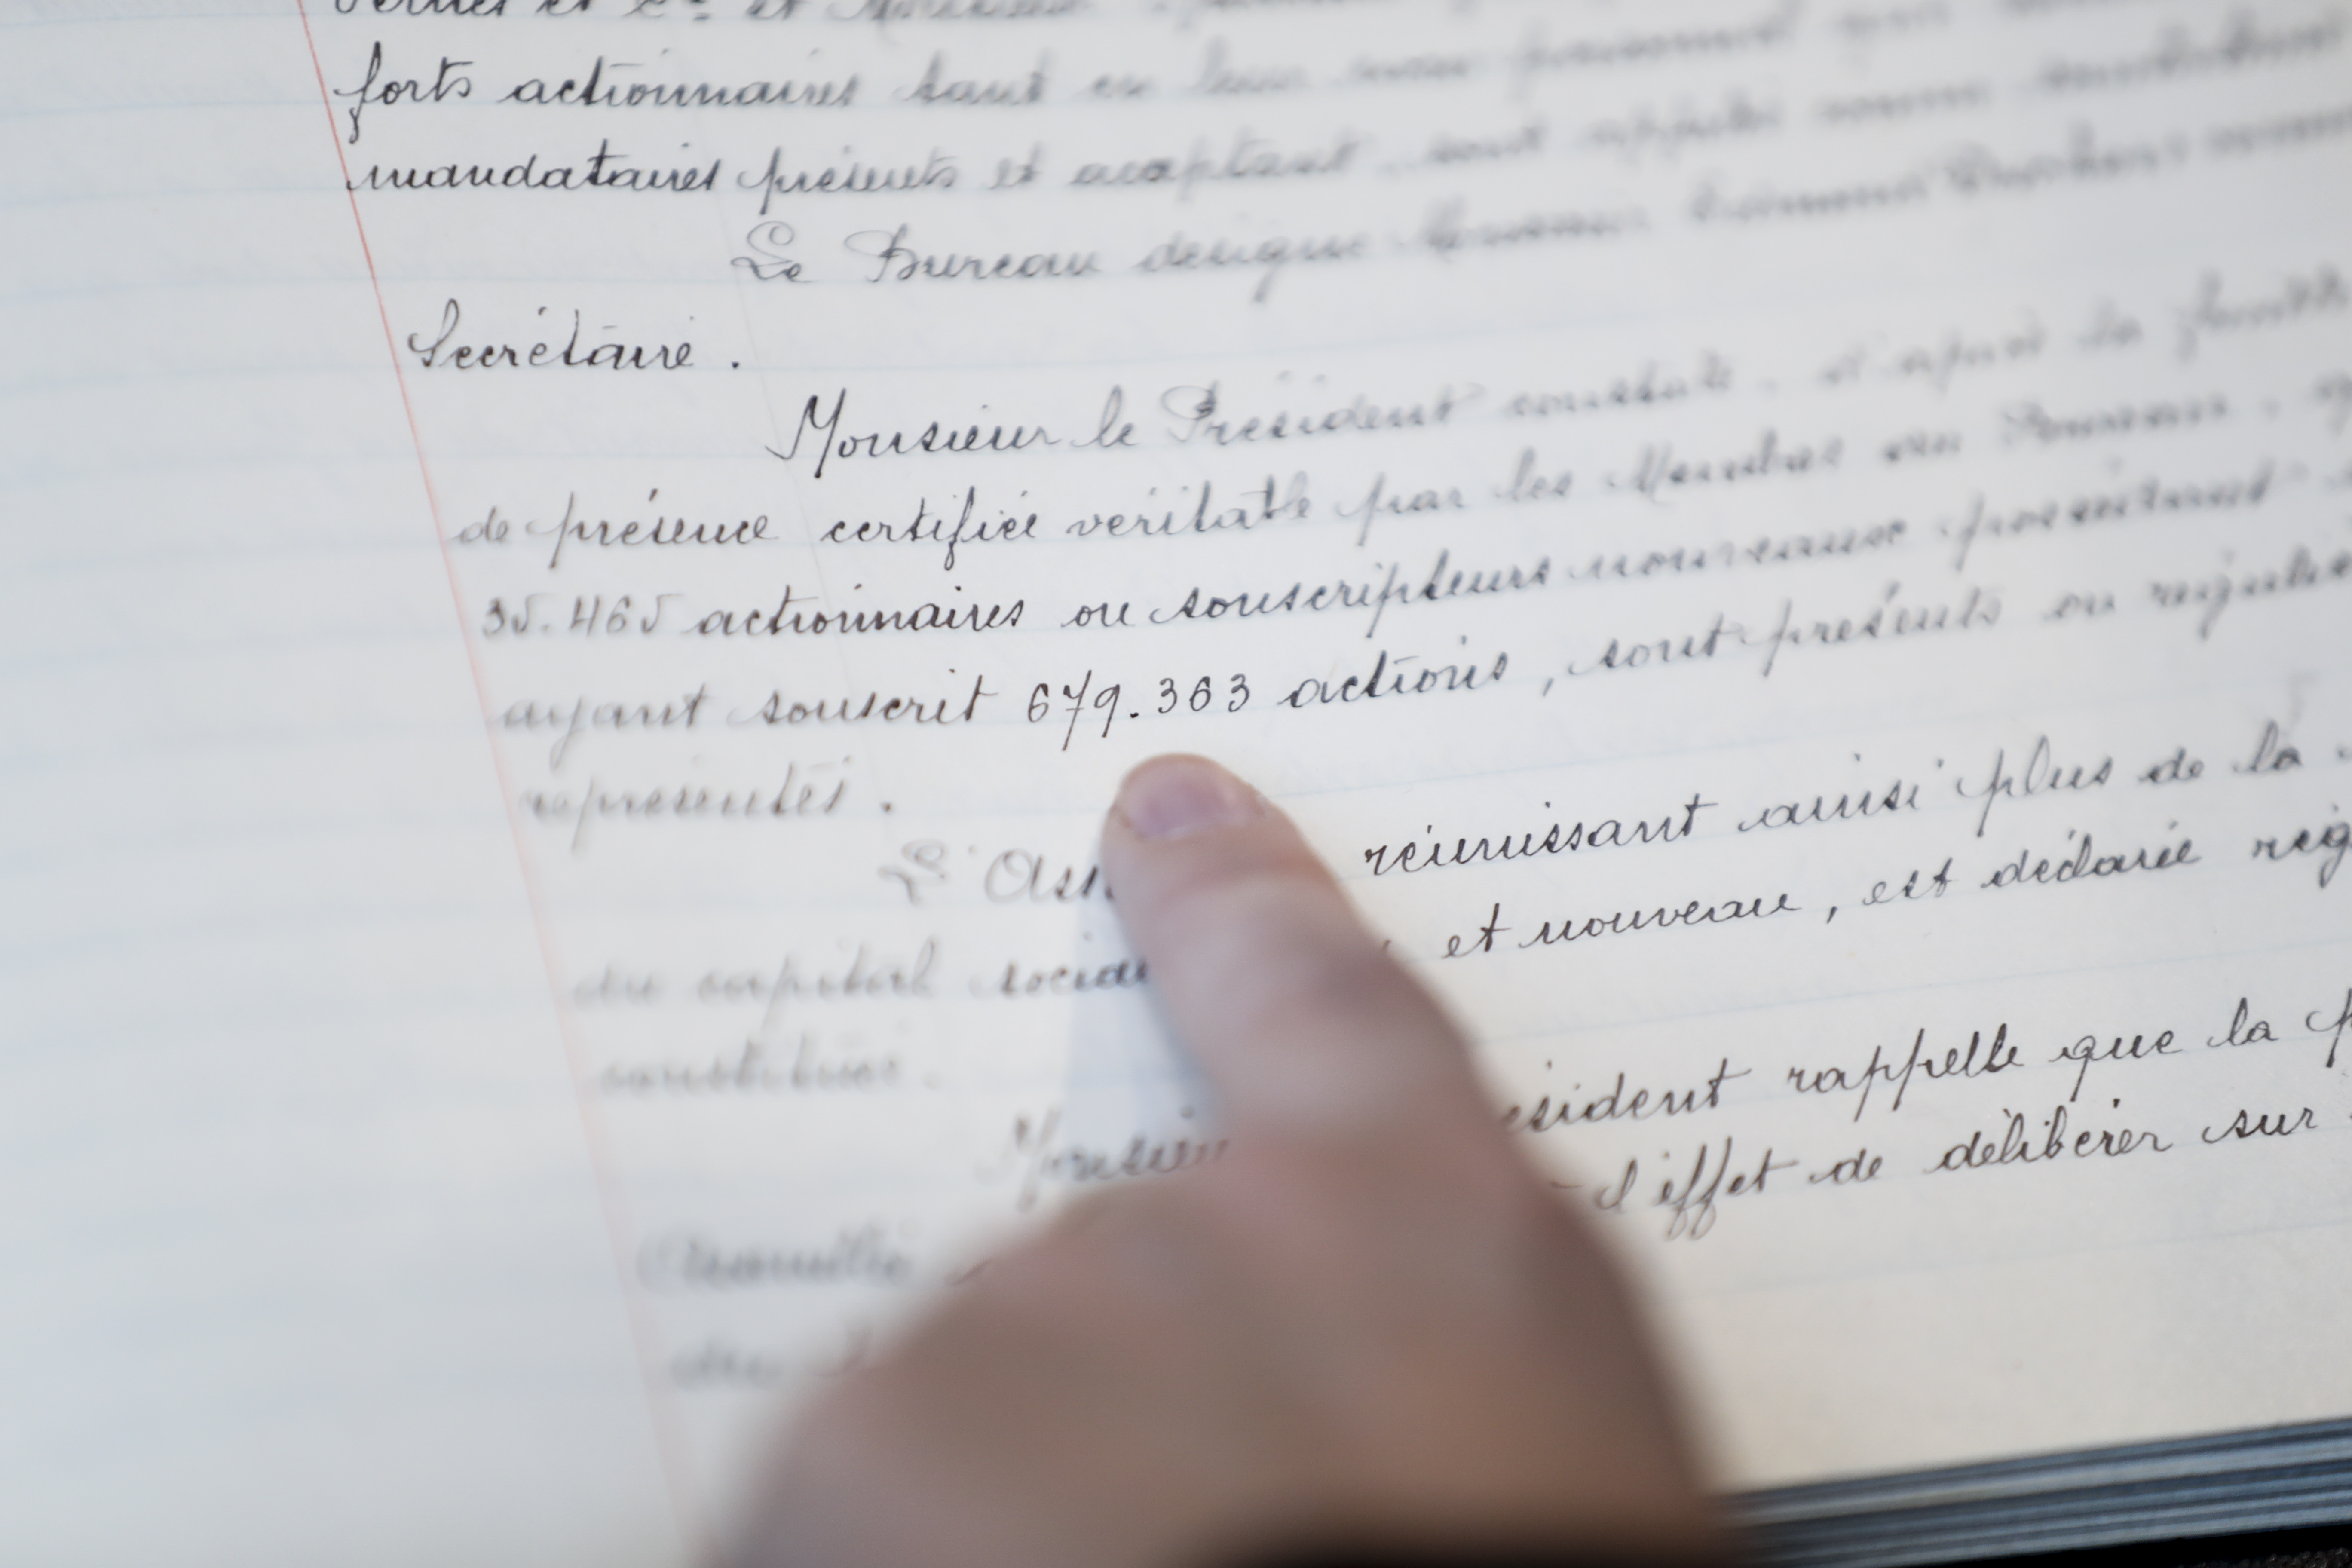 forts actionnaires tant en leur nom personnel que
mandataires présents et acceptant, sont appelés comme scrutateurs
Le Bureau désigne Monsieur
Secrétaire.
Monsieur le Président constate, d'après la feuille
de présence certifiée véritable par les Membres du Bureau,
35.465 actionnaires ou souscripteurs nouveaux possédant
ayant souscrit 679.363 actions, sont présents ou
représentés.
L' réunissant ainsi plus de la
du capital social et nouveau, est déclarée
constituée.
rappelle que la
l'effet de délibérer sur